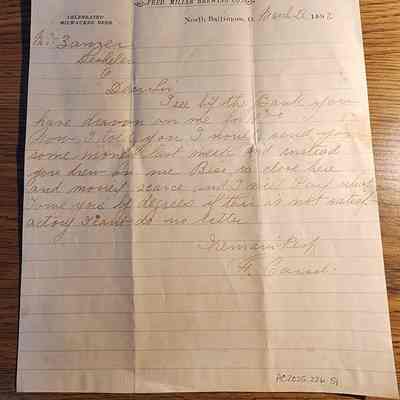 FRED. MILLER BREWING CO.
CELEBRATED
MILWAUKEE BEER
North Baltimore, O. March 1892
Mr. Zanzer
O
Dear Sir
I see by the Bank you
have drawn on me for
now I told you I would send you
some money last week and instead
you drew on me Bis is close here
and money scarce and I will Pay what
I owe you by degrees if this is not satisf
actory I cant do no better
I remain Resp
F.
PC2025.226.51